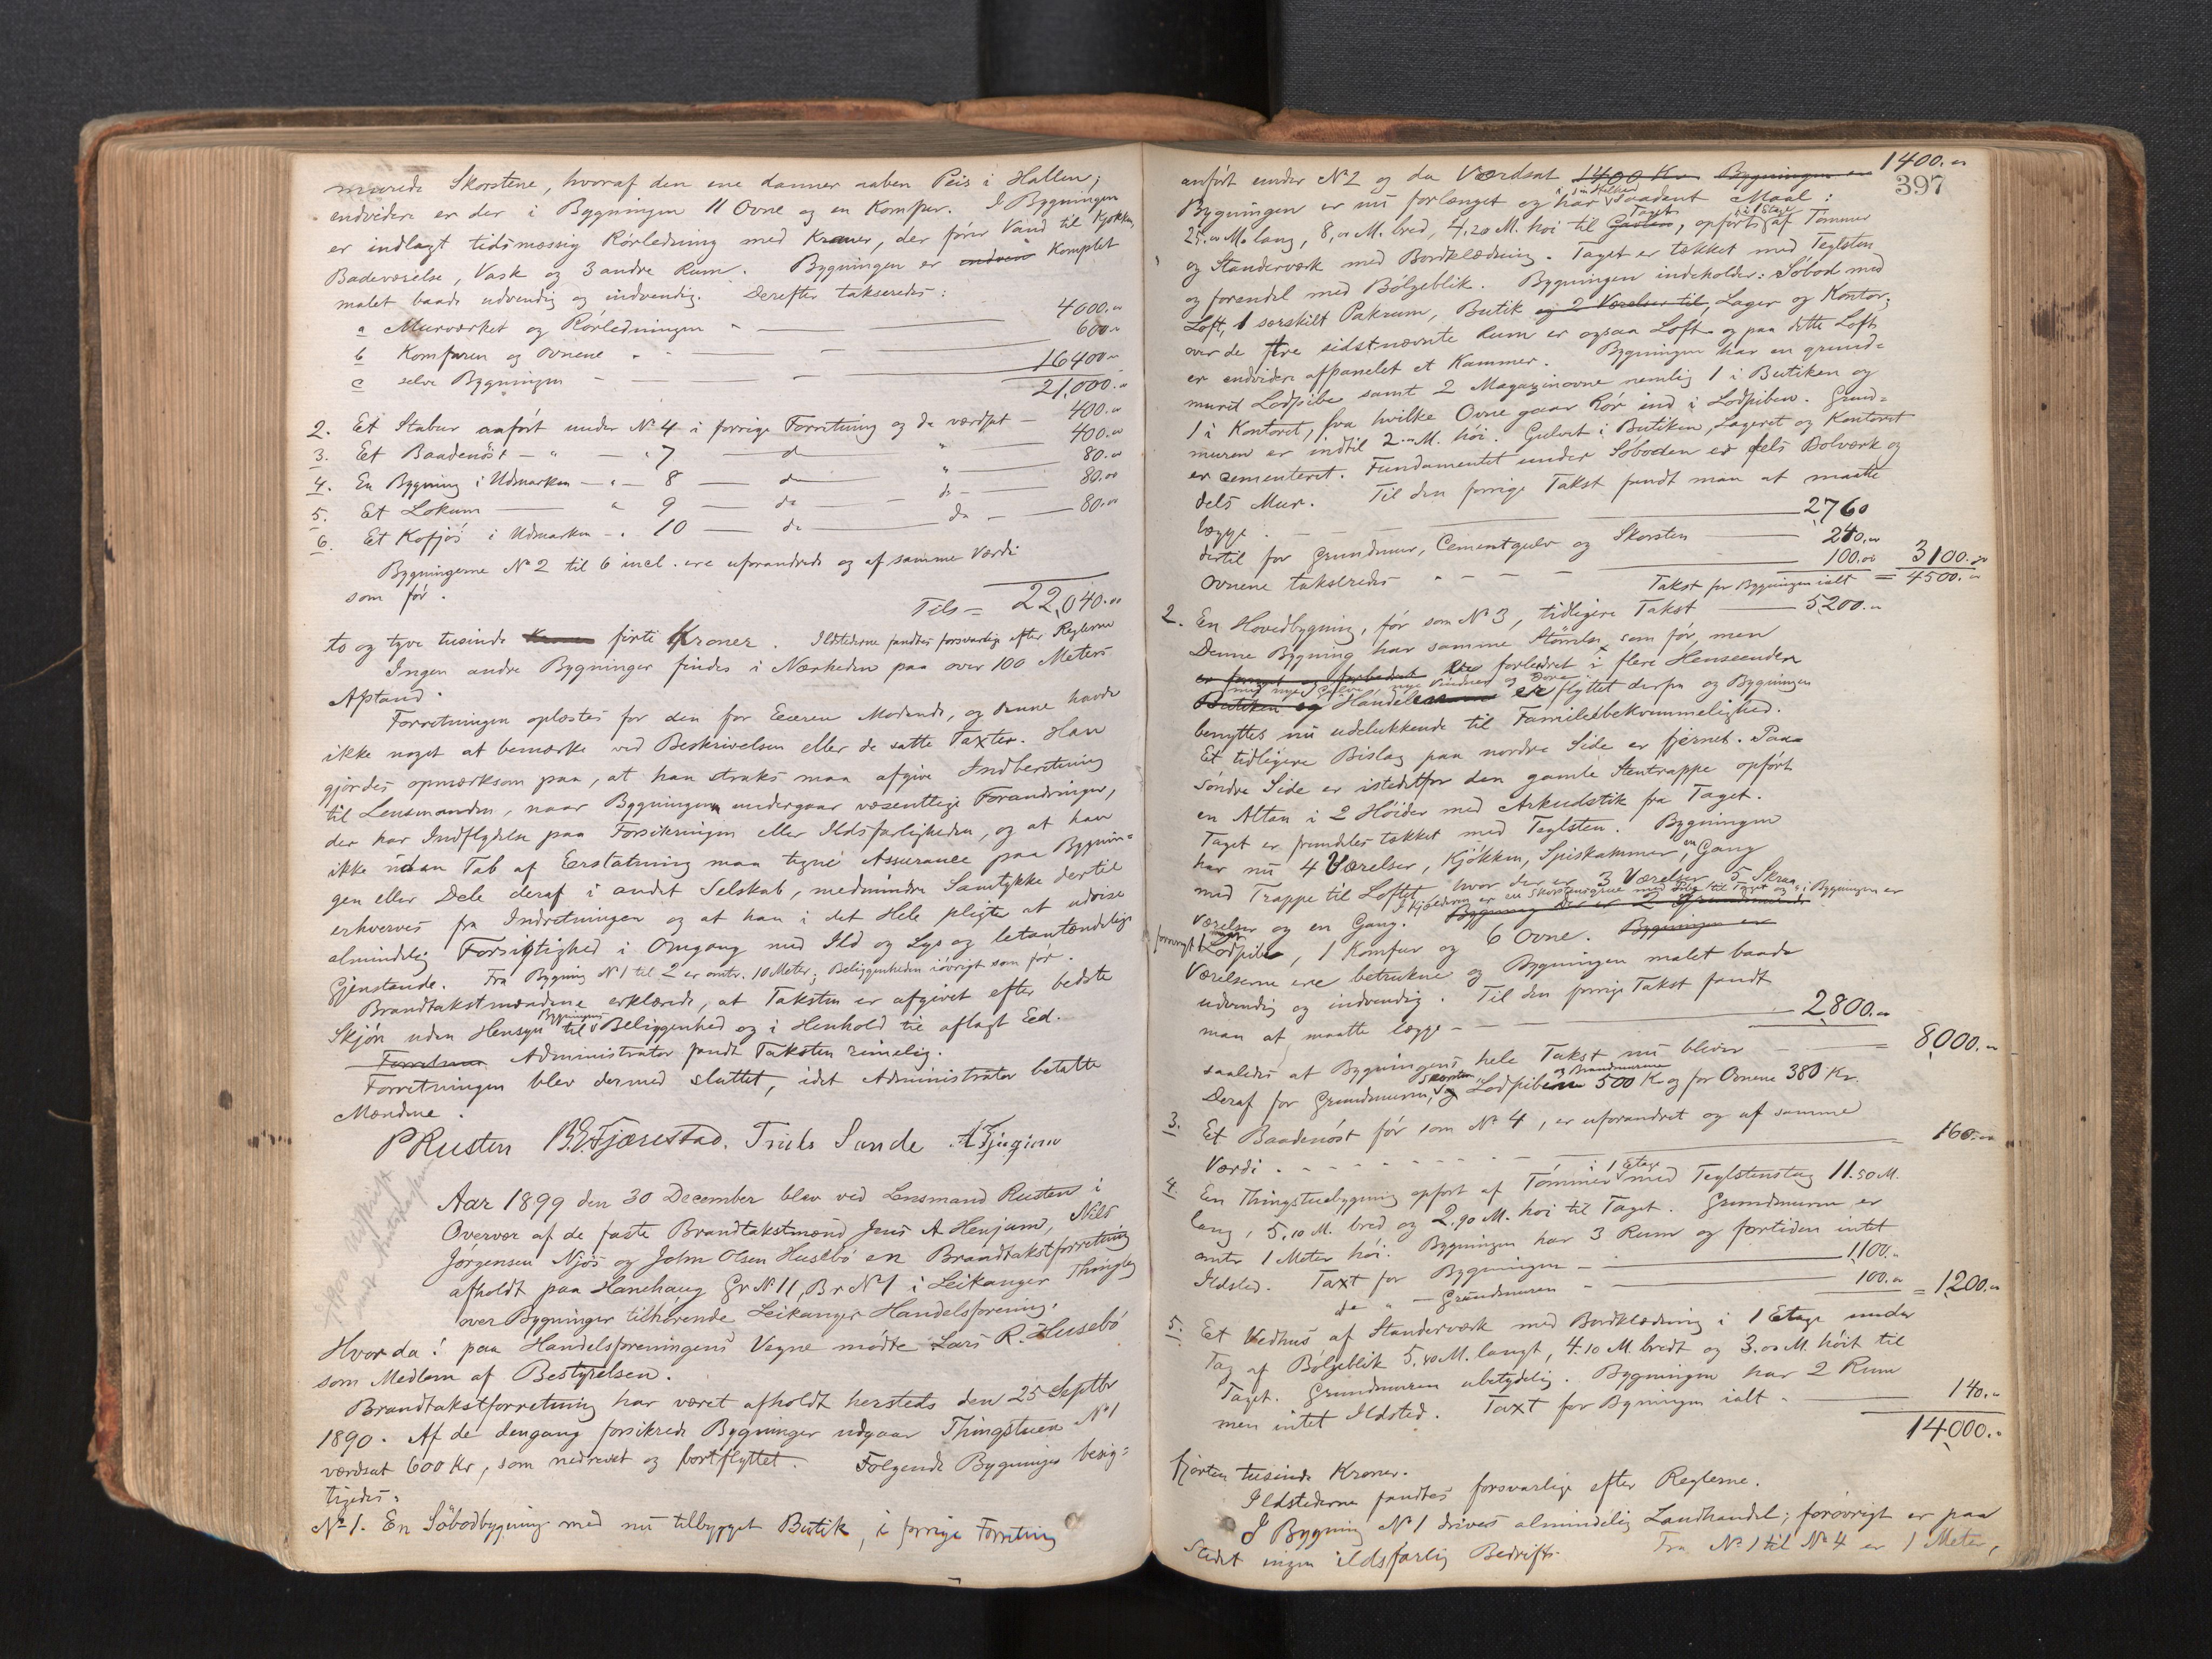 murede Skorstene, hvoraf den ene danner aaben Peis i Hallen;
endvidere er der i Bygningen 11 Ovne og en Komfur. I Bygningen
er indlagt tidsmæssig Rørledning med Kraner, der fører Vand til Kjøkken,
Badeværelse, Vask og 3 andre Rum. Bygningen er komplet
malet baade udvendig og indvendig. Derefter takseredes:
a Murværket og Rørledningen — 4000.00
b Komfuren og Ovnene — 600.00
c selve Bygningen — 16400.00
21,000.00
2. Et Stabur anført under No 4 i forrige Forretning og da værdsat — 400.00
3. Et Baadenøst — " — " 7 — d — " — 400.00
4. En Bygning i Udmarken — " — 8 — d — " — 80.00
5. Et Lokum — " 9 — do — do — 80.00
6. Et Kofjøs i Udmarken — " 10 — do — do — 80.00
Bygningerne No 2 til 6 incl. ere uforandrede og af samme Værdi
som før.
Tils = 22,040.00
to og tyve tusinde firti Kroner. Ildstederne fandtes forsvarlig efter Reglerne
Ingen andre Bygninger findes i Nærheden paa over 100 Meters
Afstand.
Forretningen oplæstes for den for Eieren Mødende, og denne havde
ikke noget at bemærke ved Beskrivelsen eller de satte Taxter. Han
gjordes opmærksom paa, at han straks maa afgive Indberetning
til Lensmanden, naar Bygningen undergaar væsentlige Forandringer,
der har Indflydelse paa Forsikringen eller Ildsfarligheden, og at han
ikke uden Tab af Erstatning maa tegne Assurance paa Bygnin-
gen eller Dele deraf i andet Selskab, medmindre Samtykke dertil
erhverves fra Indretningen og at han i det Hele pligter at udvise
almindelig Forsigtighed i Omgang med Ild og Lys og letantændelige
Gjenstande. Fra Bygning No 1 til 2 er omtr. 10 Meter; Beliggenheden iøvrigt som før.
Brandtakstmændene erklærede, at Taksten er afgivet efter bedste
Skjøn uden Hensyn til Bygningens Beliggenhed og i Henhold til aflagt Eed.
Administrator fandt Taksten rimelig.
Forretningen blev dermed sluttet, idet Administrator betalte
Mændene.
PRusten B.E.Fjærestad. Truls Sande
Aar 1899 den 30 December blev ved Lensmand Rusten i
Overvær af de faste Brandtakstmænd Jens A Henjum, Nils
Jørgensen Njøs og John Olsen Husebø en Brandtakstforretning
afholdt paa Hanehaug Gr No 11, Br No 1 i Leikanger Thinglag
over Bygninger tilhørende Leikanger Handelsforening.
Hvorda! paa Handelsforeningens Vegne mødte Lars R. Husebø
som Medlem af Bestyrelsen.
Brandtakstforretning har været afholdt hersteds den 25 Septbr
1890. Af de dengang forsikrede Bygninger udgaar Thingstuen No 1
værdsat 600 Kr, som nedrevet og bortflyttet. Følgende Bygninger besig-
tigedes:
No 1. En Søbodbygning med nu tilbygget Butik, i forrige Forretning
397
anført under No 2 og da Værdsat 1400 Kr Bygningen er 1400.00
Bygningen er nu forlænget og har i sin Helhed saadant Maal:
25.00 M. lang, 8,00 M. bred, 4,20 M. høi til Taget, opført i 1 Etage af Tømmer
og Standerværk med Bordklædning. Taget er tækket med Teglsten
og forendel med Bølgeblik. Bygningen indeholder: Søbod med
Loft, 1 særskilt Pakrum, Butik og 2 Værelser til, Lager og Kontor;
over de tre sidstnævnte Rum er ogsaa Loft og paa dette Loft
er endvidere afpanelet et Kammer. Bygningen har en grund-
muret Lodpibe samt 2 Magazinovne nemlig 1 i Butiken og
1 i Kontoret, fra hvilke Ovne gaar Rør ind i Lodpiben. Grund-
muren er indtil 2.00 M. høi. Gulvet i Butiken, Lageret og Kontoret
er cementeret. Fundamentet under Søboden er dels Bolværk og
dels Mur. Til den forrige Takst fandt man at maatte
lægge — 2760
dertil for Grundmur, Cementgulv og Skorsten — 240.00
Ovnene takseredes — 100.00 3100.00
Takst for Bygningen ialt = 4500.00
2. En Hovedbygning, før som No 3, tidligere Takst — 5200.00
Denne Bygning har samme Størrelse som før, men
er forbedret i flere Henseender
med nye Gulve, nye Vinduer og Døre
Butiken og Handelen er flyttet derfra og Bygningen
benyttes nu udelukkende til Familiebekvemmelighed.
Et tidligere Bislag paa nordre Side er fjernet. Paa
søndre Side er istedetfor den gamle Stentrappe opført
en Altan i 2 Høider med Arkudstik fra Taget.
Taget er fremdeles tækket med Teglsten. Bygningen
har nu 4 Værelser, Kjøkken, Spiskammer, en Gang
med Trappe til Loftet, hvor der er 3 Værelser, 5 Skraa-
værelser og en Gang. I Kjælderen er en Skorstensgrue med Pibe til Taget og i Bygningen er
fornøyet Lodpibe, 1 Komfur og 6 Ovne. Bygningen er
Værelserne ere betrukne og Bygningen malet baade
udvendig og indvendig. Til den forrige Takst fandt
man at maatte lægge — 2800.00
saaledes at Bygningens hele Takst nu bliver — = 8000.00
Deraf for Grundmuren, Skorsten og Lodpiberne og Brandmurene 500 Kr og for Ovnene 380 Kr.
3. Et Baadenøst før som No 4, er uforandret og af samme
Værdi — 160.00
4. En Thingstuebygning opført af Tømmer i 1 Etage med Teglstenstag 11.50 M.
lang, 5,10 M. bred og 2,90 M. høi til Taget. Grundmuren er
omtr 1 Meter høi. Bygningen har 3 Rum og fortiden intet
Ildsted. Taxt for Bygningen — 1100.00
do " — Grundmuren — 100.00 = 1200.00
5. Et Vedhus af Standerværk med Bordklædning i 1 Etage under
Tag af Bølgeblik 5,40 M. langt, 4.10 M. bredt og 3.00 M. høit til
Taget. Grundmuren ubetydelig. Bygningen har 2 Rum
men intet Ildsted. Taxt for Bygningen ialt — 140.00
14000.00
fjorten tusinde Kroner.
Ildstederne fandtes forsvarlige efter Reglerne.
I Bygning No 1 drives almindelig Landhandel; forøvrigt er paa
Stedet ingen ildsfarlig Bedrift. Fra No 1 til No 4 er 1 Meter,